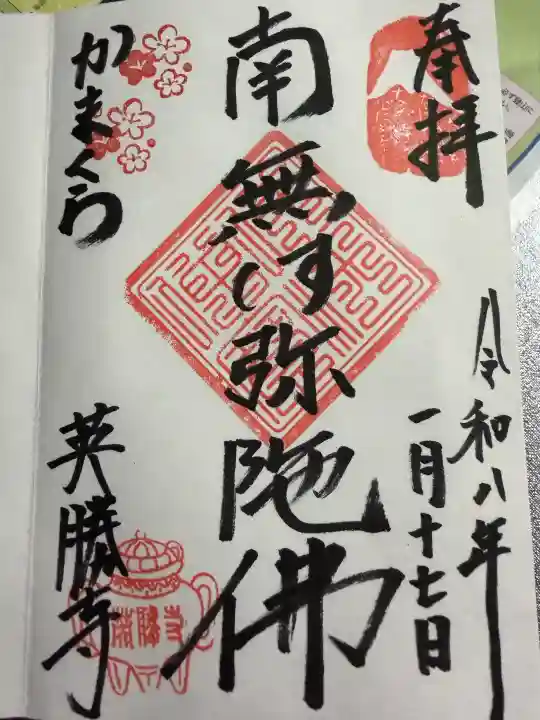 奉拝
令和八年
一月十七日
南無阿弥陀佛
かまくら
英勝寺